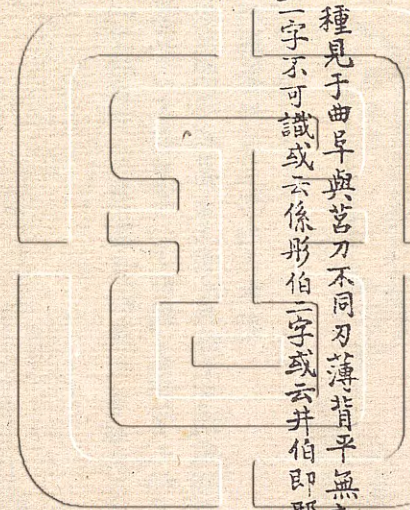 種見于曲阜與莒刀不同刃薄背平無
二字不可識或云係彤伯二字或云井伯即